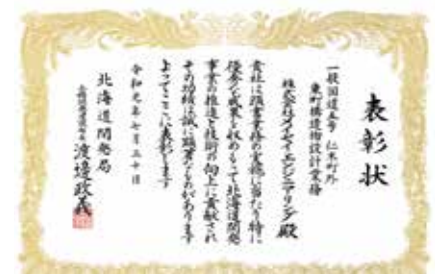 表彰状
一般国道五号 仁木町外
東町構造物設計業務
株式会社メイセイエンジニアリング 殿
貴社は頭書業務の実施に当たり特に
優秀な成果を収めもって北海道開発
事業の推進と技術の向上に貢献され
その功績は誠に顕著なものがあります
よってここに表彰します
令和元年七月三十日
北海道開発局
渡邉政義